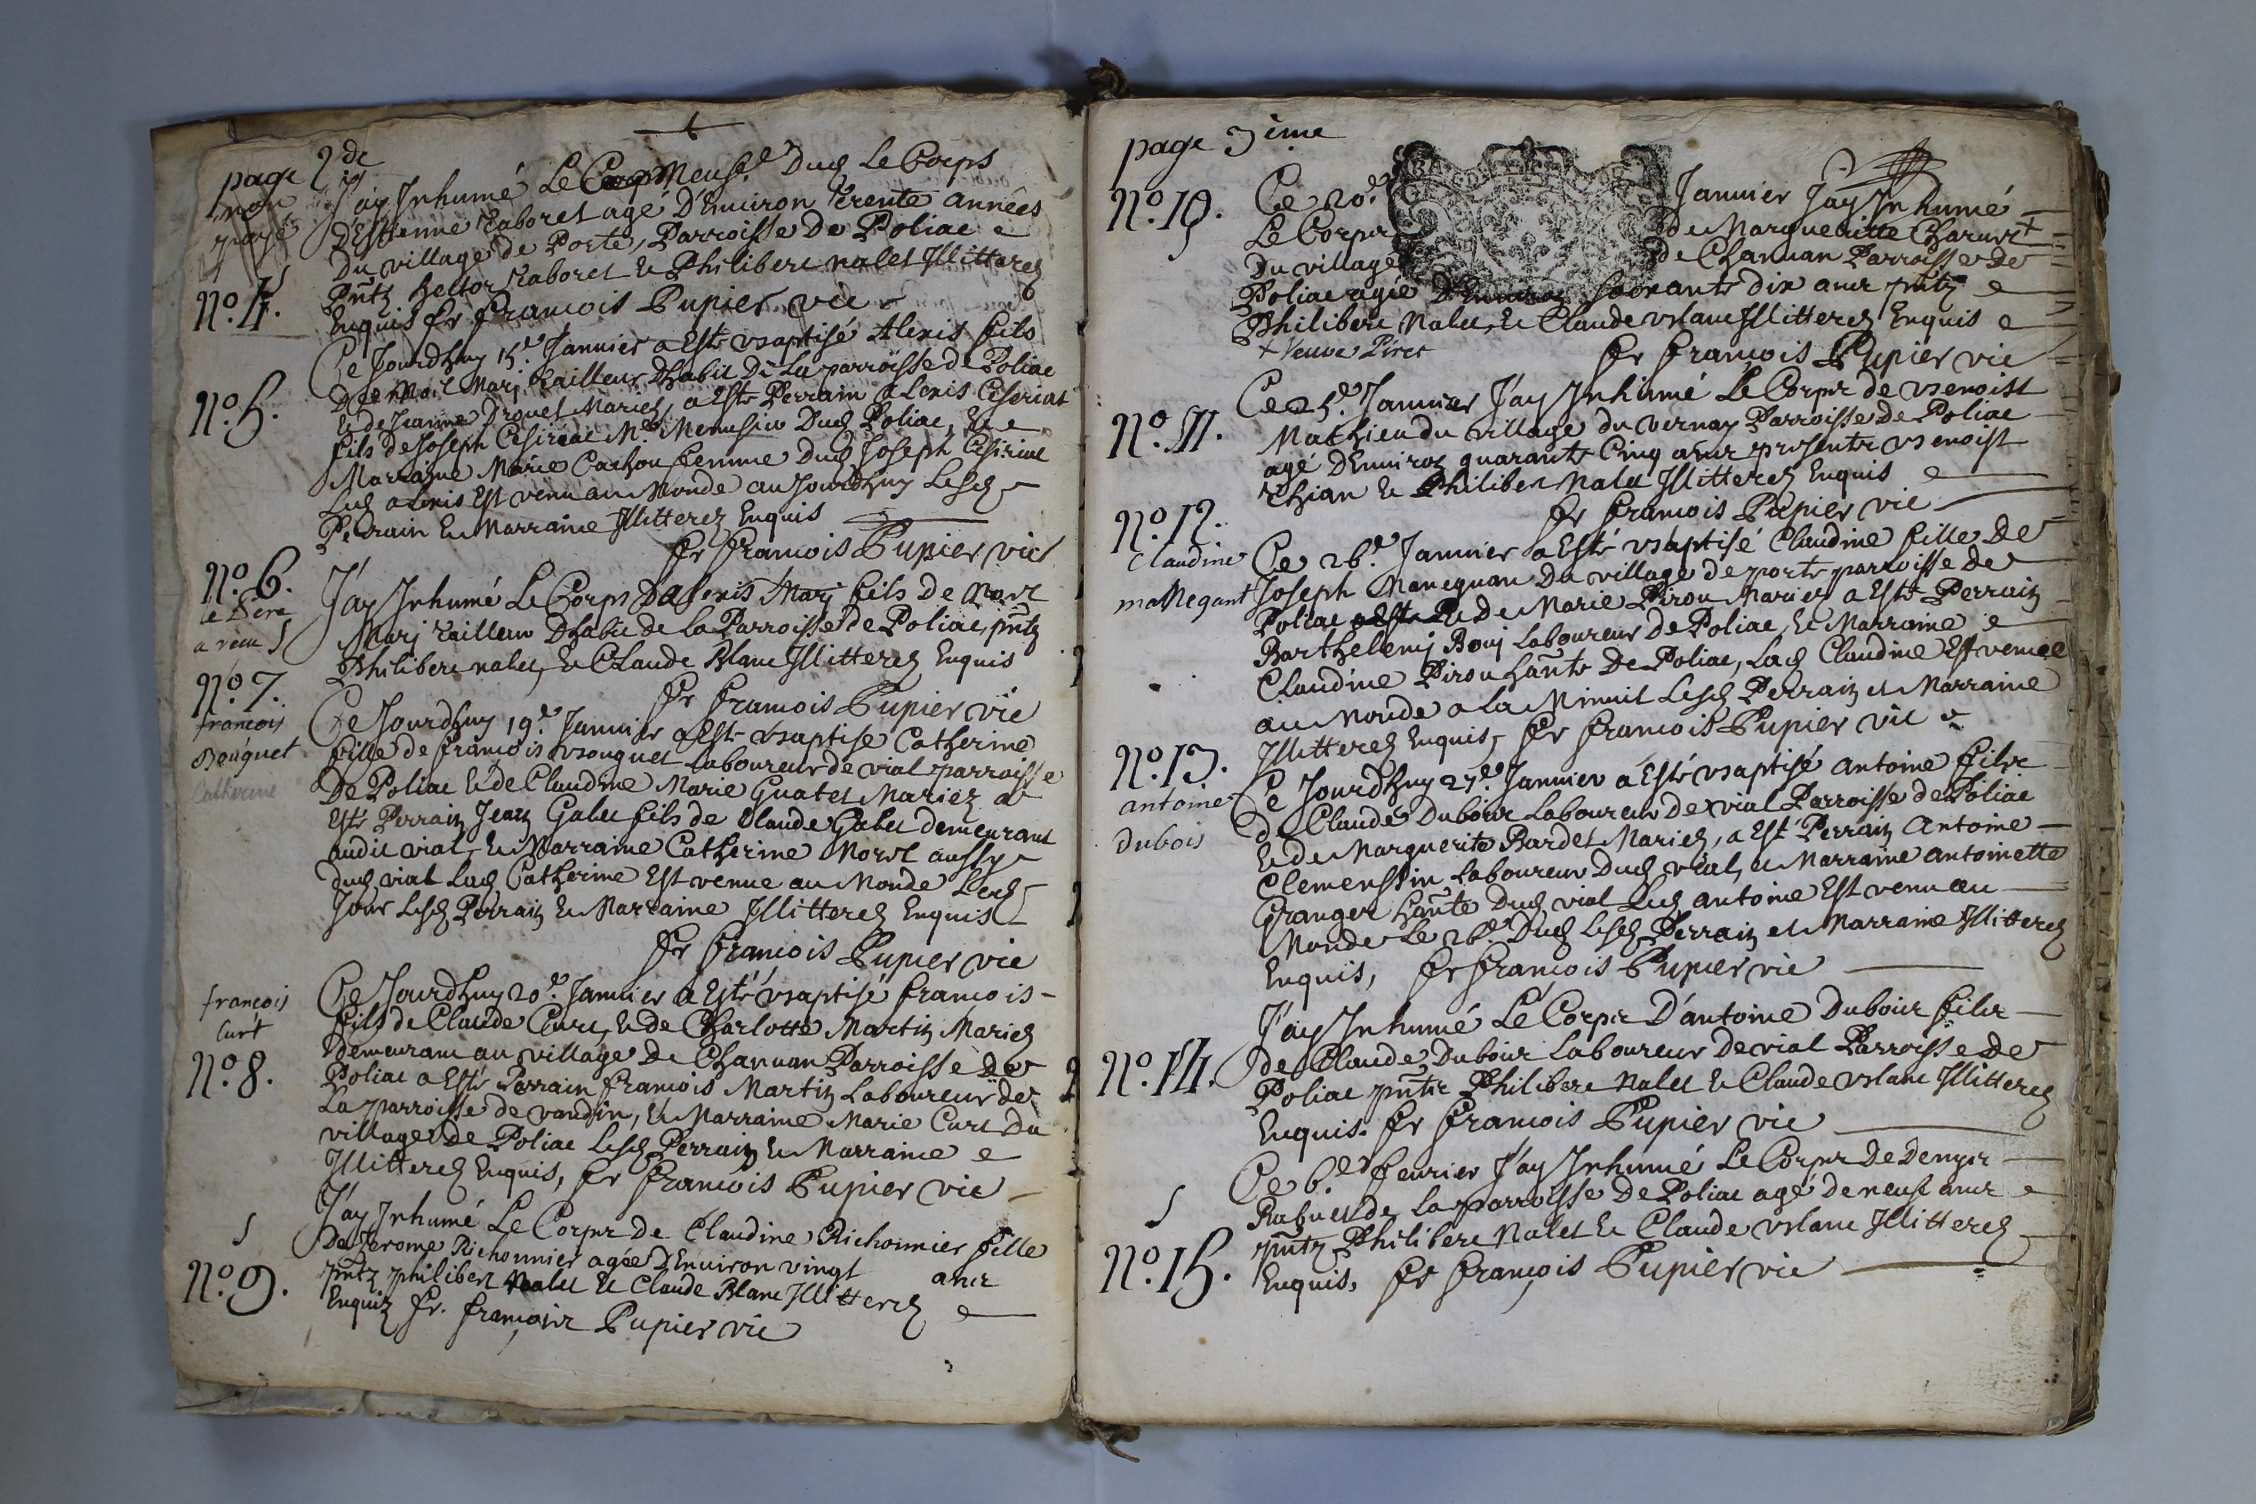 page 2de
non
payé
J'ay Inhumé Le Corps Neufe Dud Le Corps
D'Estienne Raboret agé D'Environ trente années
Du village de Porte, Parroisse De Poliac
N.o 4.
pntz hector Raboret & Philibert nalet Illitterez
Enquis fr francois Pupier vic
N.o 5.
Ce Jourdhuy 15.e Jannier a Esté Baptisé Alexis fils
De Marj tailleur D'habit De La parroisse de Poliac
& de Jeanne Drouet Mariez, a Esté Perrain Alexis
fils de Joseph M.e Menusier Dud Poliac, &
Marraine Marie femme Dud Joseph
Led alexis Est venu au Monde au Jourdhuy Lesd
Perrain & Marraine Illitterez Enquis
fr francois Pupier vic
N.o 6.
le Pere
J'ay Inhumé Le Corps D'alexis Marj fils de
Marj tailleur D'habit de La Parroisse de Poliac, pntz
Philibert nalet, & Claude Blanc Illitterez Enquis
fr francois Pupier vic
N.o 7.
francois
Bouquet
Catherine
Ce Jourdhuy 19.e Jannier a Esté Baptisé Catherine
fille de francois Bouquet Laboureur de vial parroisse
De Poliac & de Claudine Marie Guatet Mariez a
Esté Perrain Jean Galet fils de Claude Galet demeurant
audit vial, & Marraine Catherine Morel aussy
dud vial Lad Catherine Est venue au Monde Led
Jour Lesd Perrain & Marraine Illitterez Enquis
fr francois Pupier vic
francois
Curt
N.o 8.
Ce Jourdhuy 20.e Jannier a Esté Baptisé francois
fils de Claude Curt, & de Charlotte Martin Mariez
demeurant au village De Charnan Parroisse de
Poliac a Esté Parrain francois Martin Laboureur de
La parroisse de vandin, & Marraine Marie Curt Du
village de Poliac Lesd Perrain & Marraine
Illitterez Enquis, fr francois Pupier vic
N.o 9.
J'ay Inhumé Le Corps de Claudine Richonnier fille
De Jerome Richonnier agée D'Environ vingt
ans
pntz philibert Nalet & Claude Blanc Illitterez
Enquiz fr. francois Pupier vic
page 3ième
N.o 10.
Ce 20.e Jannier J'ay Inhumé
Le Corps de Margueritte +
Du village de Charnan Parroisse de
Poliac agée D'Environ soixante dix ans pntz
Philibert Nalet, & Claude Blanc Illitterez Enquis
+ Veuve Piret
fr francois Pupier vic
N.o 11.
Ce 25.e Jannier J'ay Inhumé Le Corps de Benoist
Mathieu du village du vernay Parroisse De Poliac
agé D'Environ quarante Cinq ans presents Benoist
& Philibert Nalet Illitterez Enquis
fr francois Pupier vic
N.o 12.
Claudine
manegant
Ce 26.e Jannier a Esté Baptisé Claudine fille De
Joseph Manequan Du village de porte parroisse de
Poliac & De Marie Pirou Mariez a Esté Perrain
Barthelemj Bouj Laboureur De Poliac, & Marraine
Claudine Pirou De Poliac, Lad Claudine Est venue
au Monde a La Minuit Lesd Perrain et Marraine
Illitterez Enquis, fr francois Pupier vic
N.o 13.
antoine
dubois
Ce Jourdhuy 27.e Jannier a Esté Baptisé antoine fils
de Claude Dubois Laboureur de vial Parroisse de Poliac
& de Marguerite Bardet Mariez, a Esté Perrain Antoine
Clemenssin Laboureur Dud vial, & Marraine antoinette
Granger Dud vial Led antoine Est venu au
Monde Le 26.e Dud Lesd Perrain et Marraine Illitterez
Enquis, fr francois Pupier vic
N.o 14.
J'ay Inhumé Le Corps D'antoine Dubois fils
de Claude Dubois Laboureur De vial Parroisse De
Poliac pntz Philibert Nalet & Claude Blanc Illitterez
Enquis. fr francois Pupier vic
N.o 15.
Ce 6.e fevrier J'ay Inhumé Le Corps De Denys
de La parroisse De Poliac agé de neuf ans
pntz Philibert Nalet & Claude Blanc Illitterez
Enquis, fr francois Pupier vic